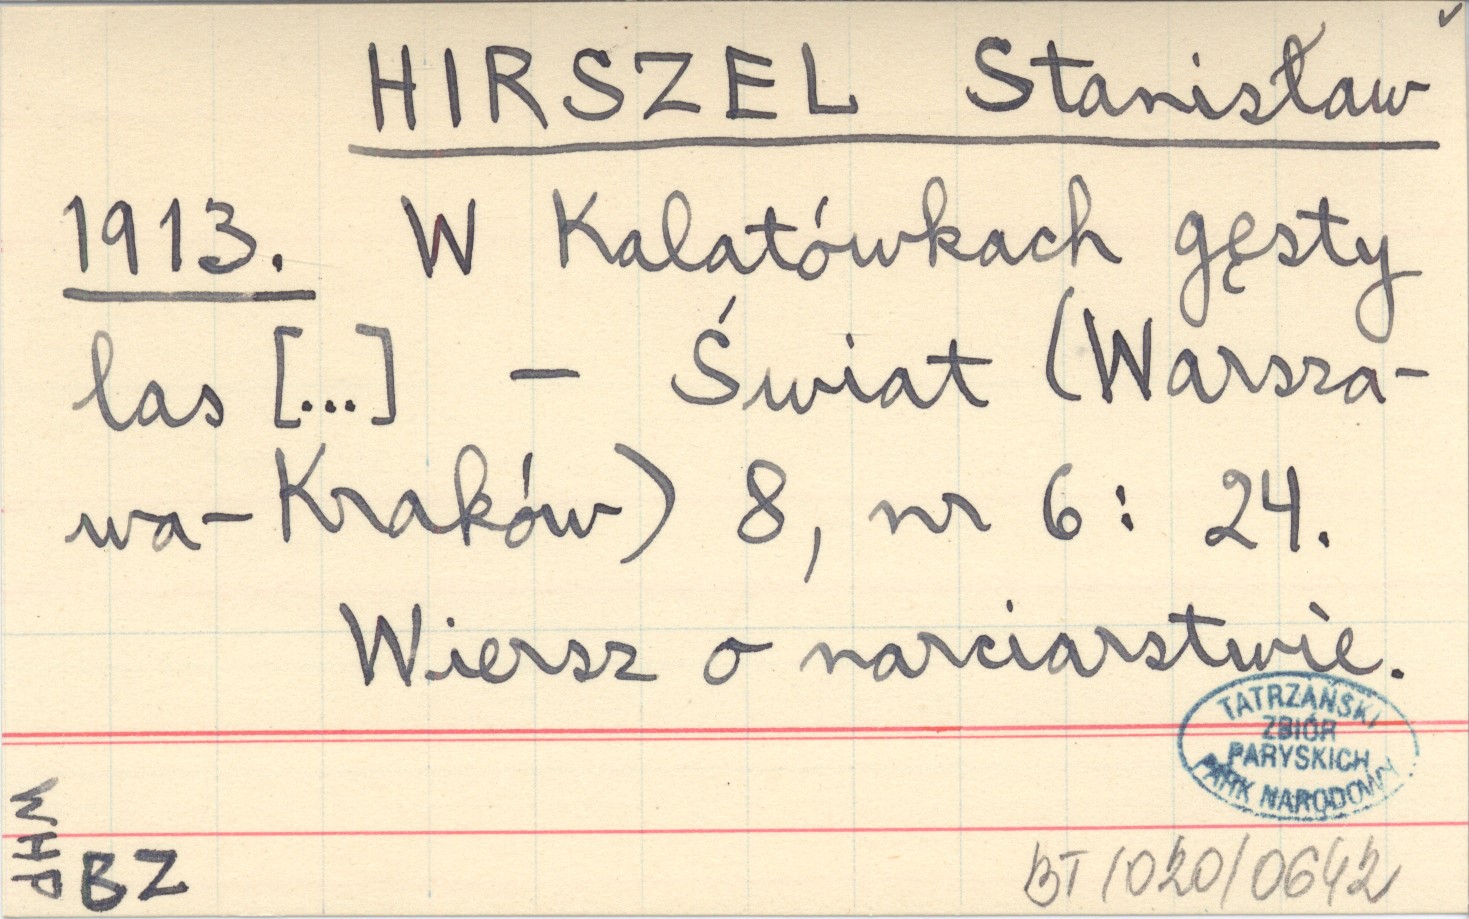 HIRSZEL Stanisław
1913. W Kalatówkach gęsty
las [...] – Świat (Warsza-
wa-Kraków) 8, nr 6: 24.
Wiersz o narciarstwie.
TATRZAŃSKI
ZBIÓR
PARYSKICH
PARK NARODOWY
WHP
BZ
BT/020/0642